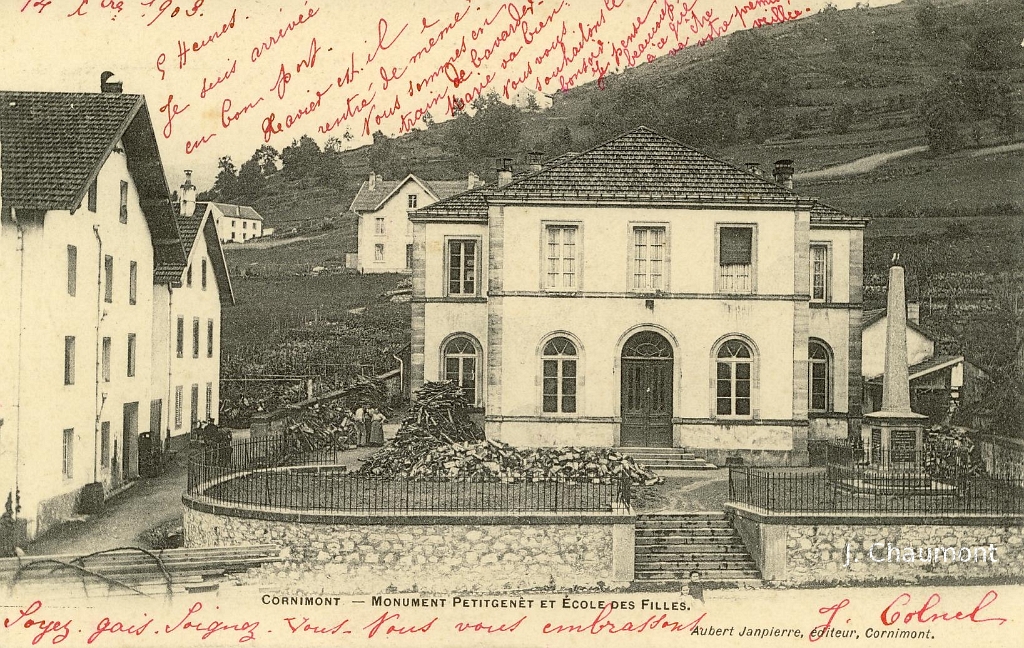 14 1903.
G Heures.
Je suis arrivée
en bon port.
Xavier est-il
rentré de même.
Nous sommes en
train de bavarder.
Marie va bien.
Nous vous
souhaitons le
bonsoir
Je pense
beaucoup
à ce que
va être
votre première
veillée.
J. Chaumont
CORNIMONT — MONUMENT PETITGENÊT ET ÉCOLE DES FILLES.
Soyez gais. Soignez-Vous. Nous vous embrassons J. Colnel
Aubert Janpierre, éditeur, Cornimont.